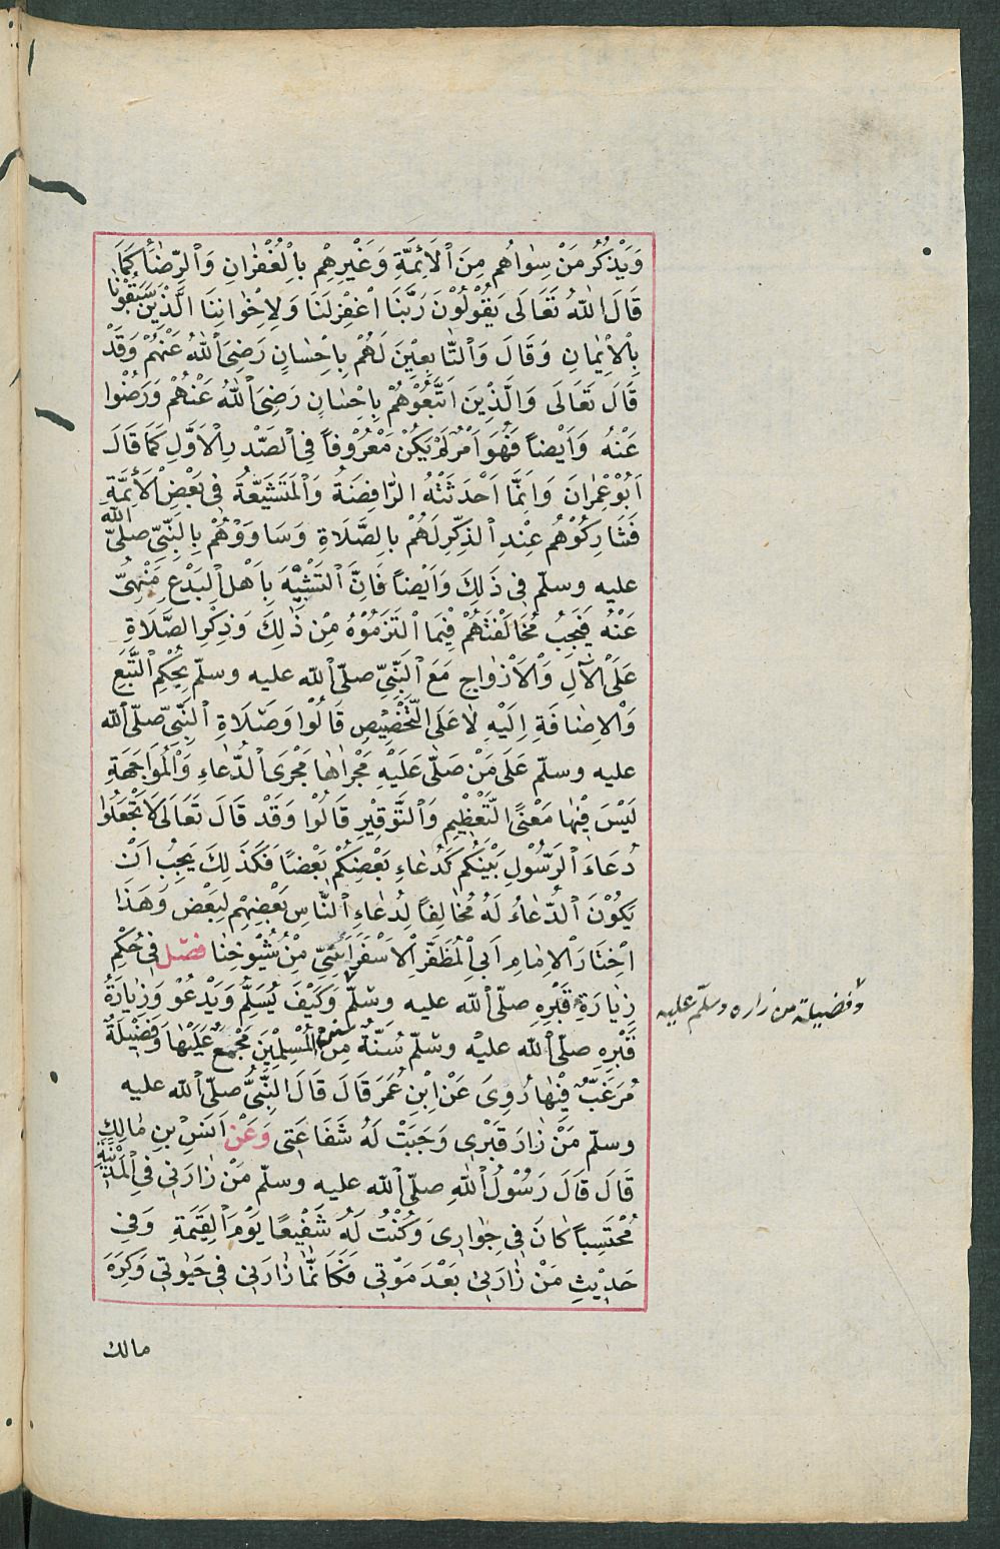 وَيُذْكَرُ مَنْ سِوٰاهُم مِنَ الْاَئِمَّةِ وَغَيْرِهِمْ بِالْغُفْرٰانِ وَالرِّضٰا كَمَا
قَالَ اللّٰهُ تَعَالَى يَقُوْلُوْنَ رَبَّنَا اغْفِرْلَنَا وَلِاِخْوٰانِنَا الَّذِيْنَ سَبَقُوْنٰا
بِالْاِيْمٰانِ وَقَالَ وَالتّٰابِعِيْنَ لَهُمْ بِاِحْسٰانٍ رَضِىَ اللّٰهُ عَنْهُمْ وَقَدْ
قَالَ تَعَالَى وَالَّذِيْنَ اتَّبَعُوْهُمْ بِاِحْسٰانٍ رَضِىَ اللّٰهُ عَنْهُمْ وَرَضُوْا
عَنْهُ وَاَيْضاً فَهُوَ اَمْرٌ لَمْ يَكُنْ مَعْرُوْفاً فِى الصَّدْرِ الْاَوَّلِ كَمَا قَالَ
اَبُوْ عِمْرٰانَ وَاِنَّمَا اَحْدَثَتْهُ الرّٰافِضَةُ وَالْمُتَشَيِّعَةُ فِى بَعْضِ الْاَئِمَّةِ
فَشَارَكُوْهُم عِنْدِ الذِّكْرِ لَهُمْ بِالصَّلَاةِ وَسَاوَوْهُمْ بِالنَّبِىِّ صلّى اللّٰه
عليه وسلّم فِى ذَلِكَ وَاَيْضاً فَاِنَّ التَّشَبُّهَ بِاَهْلِ الْبِدَعِ مَنْهِىٌّ
عَنْهُ فَيَجِبُ مُخَالَفَتُهُمْ فِيْمَا الْتَزَمُوْهُ مِنْ ذَٰلِكَ وَذِكْرِ الصَّلَاةِ
عَلَى الْاٰلِ وَالْاَزْوٰاجِ مَعَ النَّبِىِّ صلّى اللّٰه عليه وسلّم بِحُكْمِ التَّبَعِ
وَالْاِضٰافَةِ اِلَيْهِ لٰا عَلَى التَّخْصِيْصِ قَالُوْا وَصَلَاةِ النَّبِىِّ صلّى اللّٰه
عليه وسلّم عَلَى مَنْ صَلّٰى عَلَيْهِ مَجْرٰاهٰا مَجْرَى الدُّعٰاءِ وَالْمُوٰاجَهَةِ
لَيْسَ فِيْهٰا مَعْنَى التَّعْظِيْمِ وَالتَّوْقِيْرِ قَالُوْا وَقَدْ قَالَ تَعَالَى لَا تَجْعَلُوْا
دُعَاءَ الرَّسُوْلِ بَيْنَكُم كَدُعٰاءِ بَعْضِكُمْ بَعْضًا فَكَذَلِكَ يَجِبُ اَنْ
يَكُوْنَ الدُّعٰاءُ لَهُ مُخٰالِفًا لِدُعٰاءِ النَّاسِ بَعْضِهِمْ لِبَعْضٍ وَهَذَا
اخْتِيَارُ الْاِمٰامِ اَبِى الْمُظَفَّرِ الْاَسْفَرَايِنِىِّ مِنْ شُيُوْخِنٰا فصل فِى حُكْمِ
زِيٰارَةِ قَبْرِهِ صلّى اللّٰه عليه وسلّم وَكَيْفَ يُسَلِّمُ وَيَدْعُوْ وَزِيٰارَةُ
وفضيلة من زاره وسلّم عليه
قَبْرِهِ صلّى اللّٰه عليه وسلّم سُنَّةٌ مِنْ سنن الْمُسْلِمِيْنَ مُجْمَعٌ عَلَيْهٰا وَفَضِيْلَةٌ
مُرَغَّبٌ فِيْهٰا رُوِىَ عَنْ ابْنِ عُمَرَ قَالَ قَالَ النَّبِىُّ صلّى اللّٰه عليه
وسلّم مَنْ زٰارَ قَبْرِى وَجَبَتْ لَهُ شَفَاعَتِى وَعَنْ اَنَسِ بْنِ مٰالِكٍ
قَالَ قَالَ رَسُوْلُ اللّٰهِ صلّى اللّٰه عليه وسلّم مَنْ زٰارَنِى فِى الْمَدِيْنَةِ
مُحْتَسِباً كٰانَ فِى جِوٰارِىَ وَكُنْتُ لَهُ شَفِيْعًا يَوْمَ الْقِيٰمَةِ وَفِى
حَدِيْثٍ مَنْ زٰارَنِى بَعْدَ مَوْتِى فَكَاَنَّمٰا زٰارَنِى فِى حَيٰوتِى وَكَرِهَ
مالك